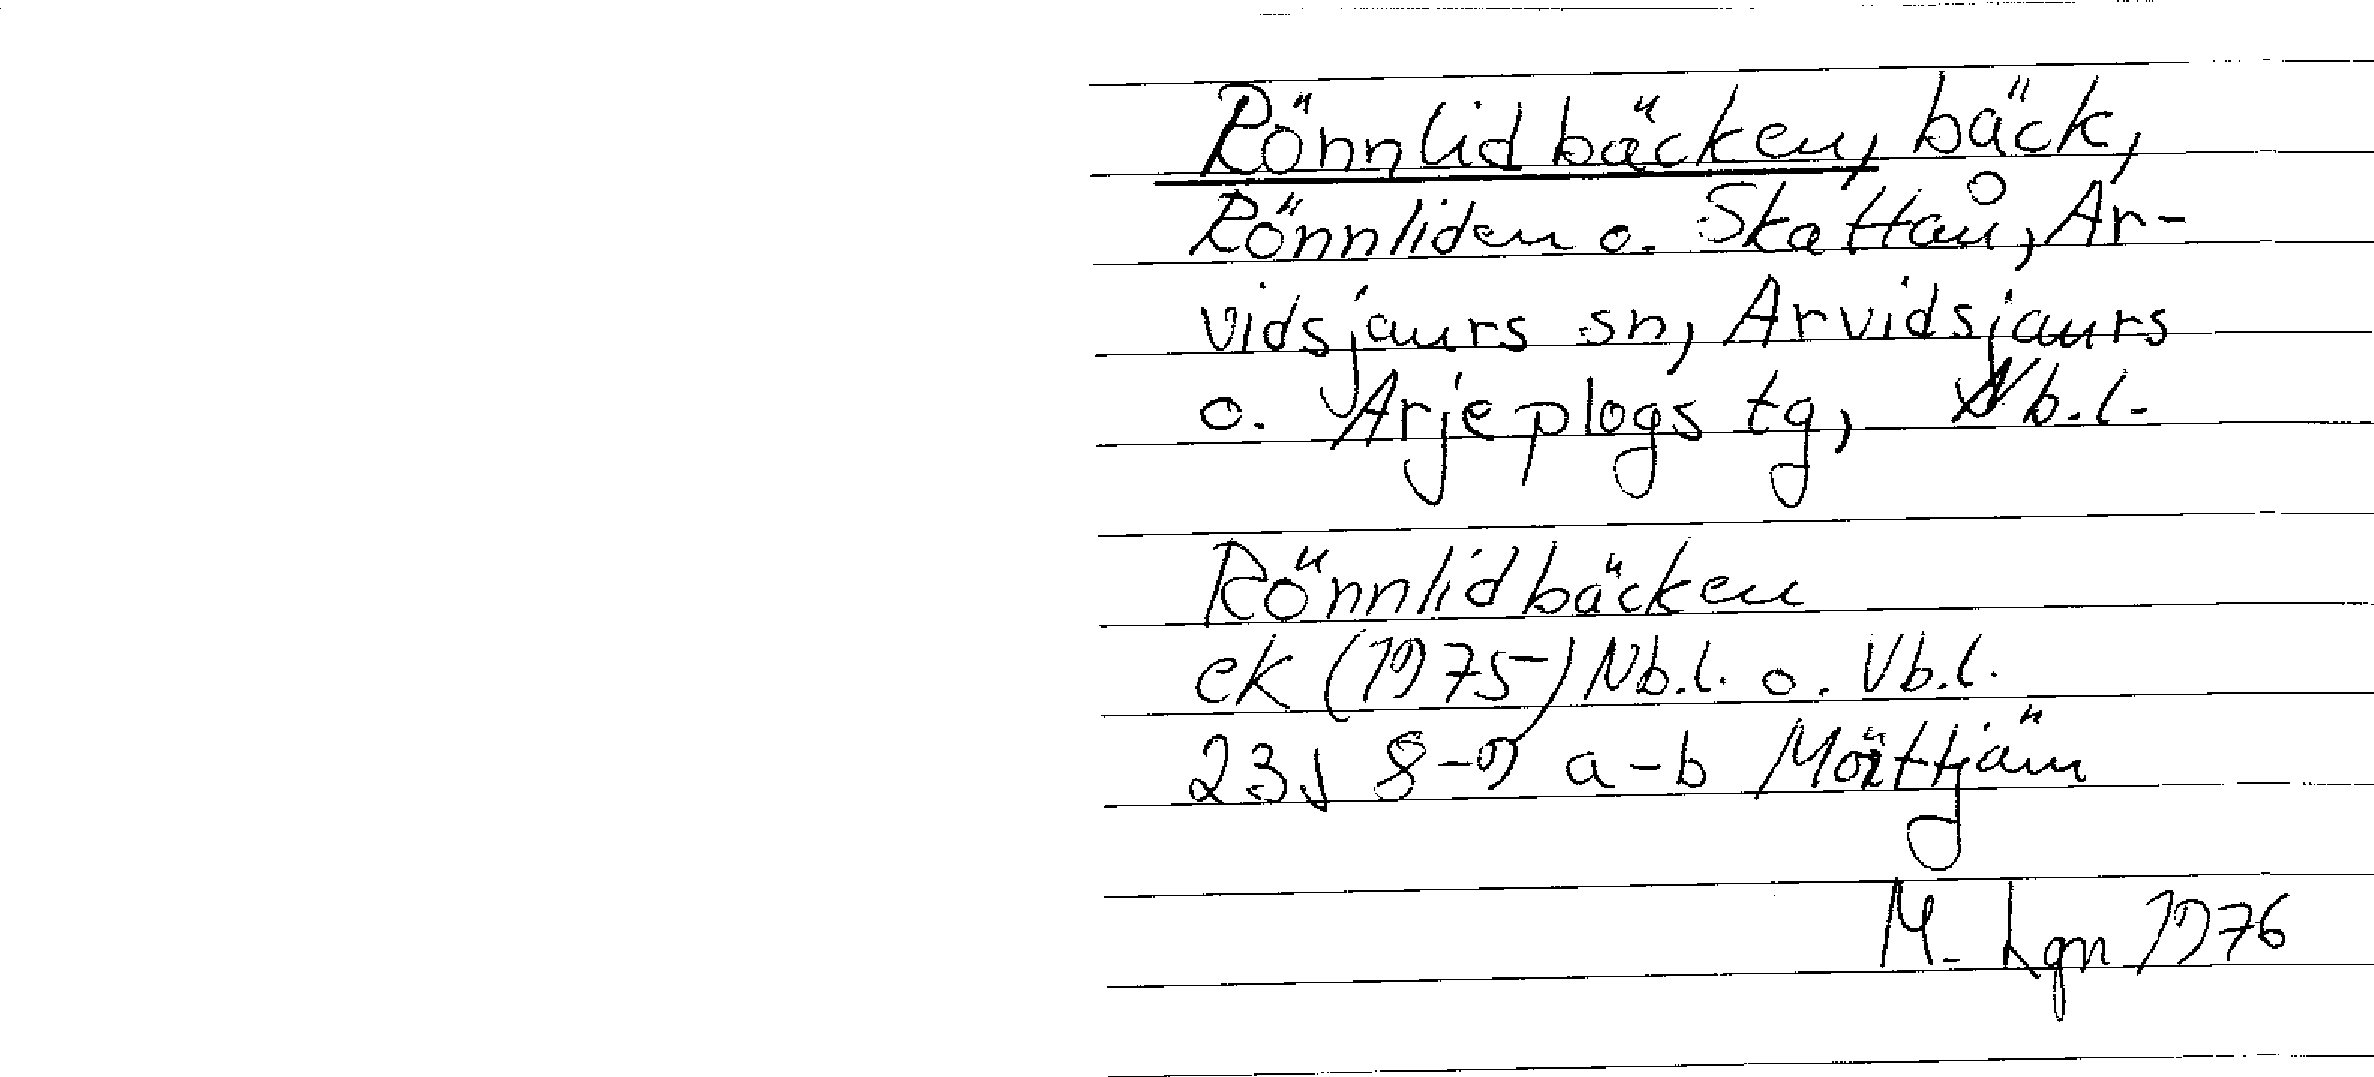 Rönnlidbäcken, bäck,
Rönnliden o. Skattån, Ar-
vidsjaurs sn, Arvidsjaurs
o. Arjeplogs tg, Nb.l.
Rönnlidbäcken
ek (1975) Nb.l. o. Vb.l.
23J 8-9 a-b
M. Lgn 1976